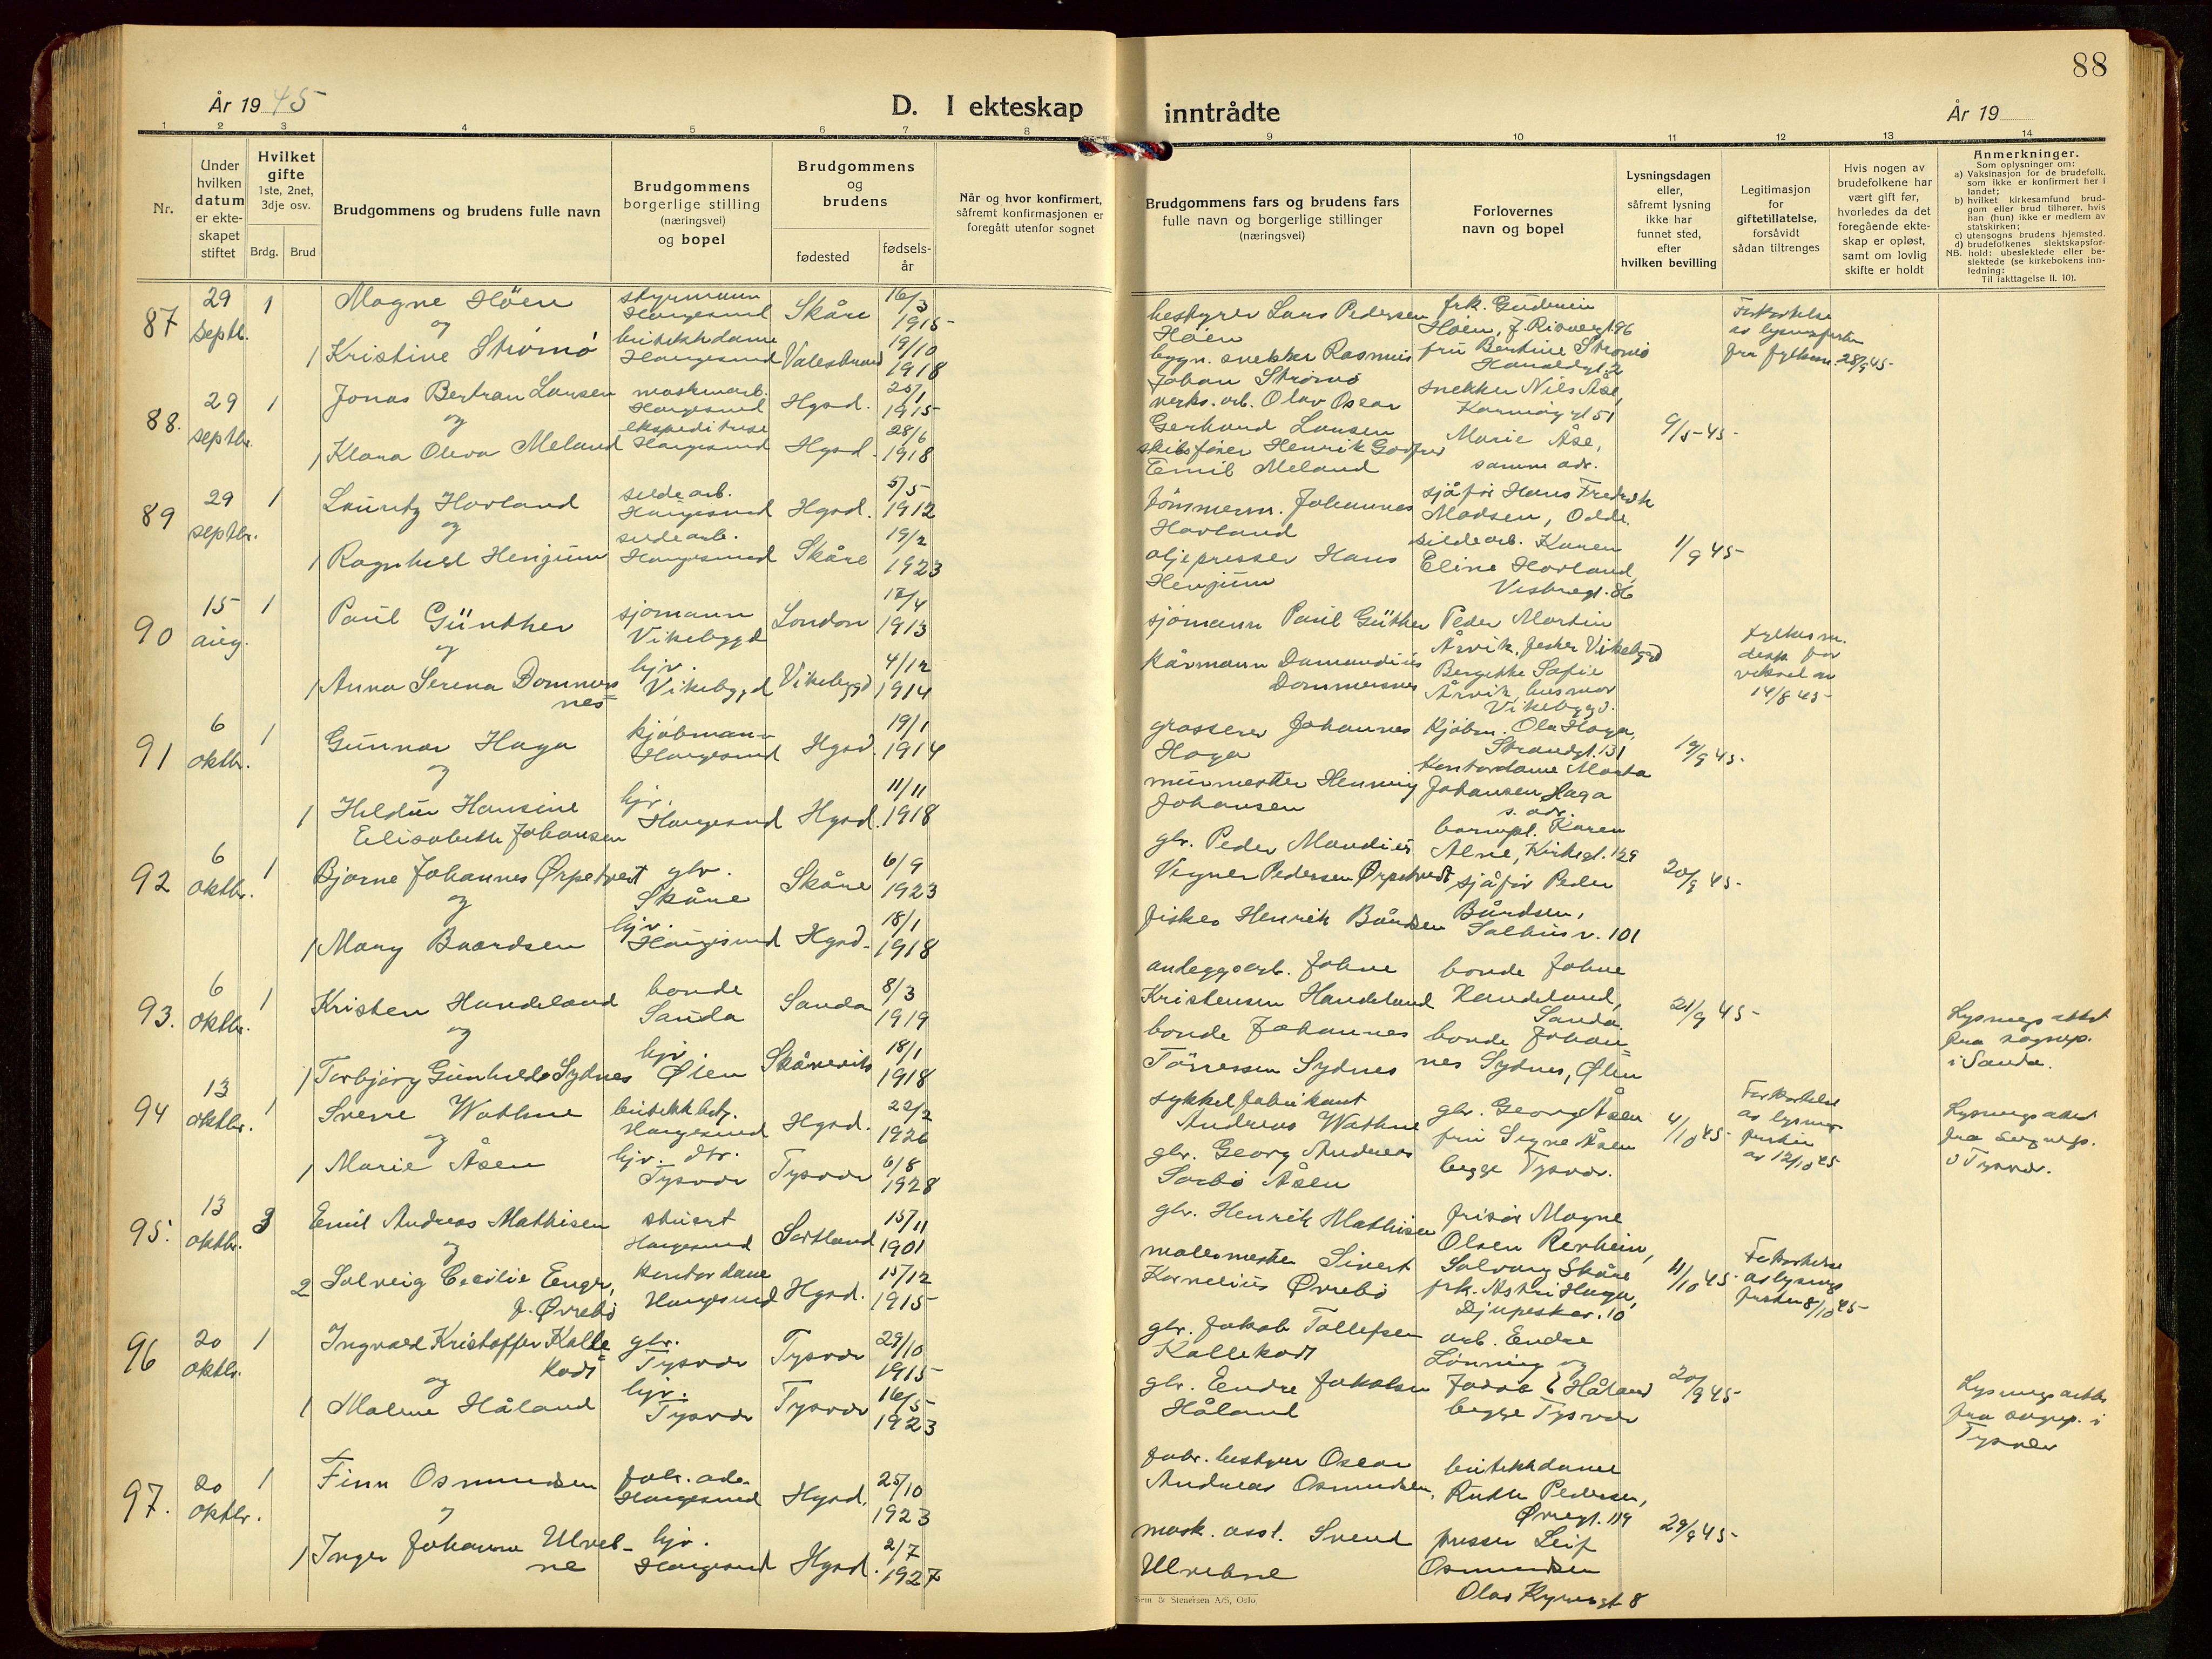 88
År 1945
D. I ekteskap inntrådte
År 19
1 2 3 4 5 6 7 8 9 10 11 12 13 14
Nr.
Under hvilken datum er ekteskapet stiftet
Hvilket gifte
1ste, 2net, 3dje osv.
Brdg. Brud
Brudgommens og brudens fulle navn
Brudgommens borgerlige stilling (næringsvei) og bopel
Brudgommens og brudens
fødested
fødsels-år
Når og hvor konfirmert, såfremt konfirmasjonen er foregått utenfor sognet
Brudgommens fars og brudens fars fulle navn og borgerlige stillinger (næringsvei)
Forlovernes navn og bopel
Lysningsdagen eller, såfremt lysning ikke har funnet sted, efter hvilken bevilling
Legitimasjon for giftetillatelse, forsåvidt sådan tiltrenges
Hvis nogen av brudefolkene har vært gift før, hvorledes da det foregående ekteskap er opløst, samt om lovlig skifte er holdt
Anmerkninger.
Som oplysninger om:
a) Vaksinasjon for de brudefolk. som ikke er konfirmert her i landet;
b) hvilket kirkesamfund brudgom eller brud tilhører, hvis han (hun) ikke er medlem av statskirken;
c) utensogns brudens hjemsted.
d) brudefolkenes slektskapsforhold: ubeslektede eller beslektede (se kirkebokens innledning:
NB.
Til iakttagelse II. 10).
87
29 septbr.
1
Magne Höen
og
1 Kristine Strømø
styrmann Haugesund
butikkdame Haugesund
Skåre
Valestrand
16/3 1915
19/10 1918
bestyrer Lars Pedersen Höen
bygn. snekker Rasmus Johan Strømø
frk. Gudrun Höen,
fru Bertine Strømø
Haraldsgt. 2
Forkortelse av lysningsfristen fra fylkesm. 28/9 45
88.
29 septbr.
1
Jonas Bertran Larsen
og
1 Klara Oleva Meland
maskinarb. Haugesund
ekspeditrise Haugesund
Hgsd.
Hgsd.
1915
28/6 1918
verks. arb. Olav Oscar Gerhard Larsen
skibsfører Henrik Godfred Emil Meland
snekker Nils Åse, Karmøygt 51
Marie Åse, samme adr.
9/5-45-
89
29 septbr.
1
Lauritz Hovland
og
1 Ragnhild Henjum
sildearb. Haugesund
sildearb. Haugesund
Hgsd.
Skåre
5/5 1912
19/2 1923
tömmerm. Johannes Hovland
oljepresser Hans Henjum
sjåfør Hans Fredrik Madsen, Odda.
sildearb. Karen Eline Hovland,
1/9 45-
90
15 aug.
1
Paul Günther
og
1 Anna Serena Dommersnes
sjømann Vikebygd
hjv. Vikebygd
London
Vikebygd
12/4 1913
4/12 1914
sjømann Paul Güther
Dommersnes
Peder Martin Årvik, fisker Vikebygd
Bergitte Sofie Årvik, husmor Vikebygd.
14/8 45-
91
6 oktbr.
1
Gunnar Haga
og
1 Hildur Hansine Elisabeth Johansen
kjøbmann Haugesund
hjv. Haugesund
Hgsd.
Hgsd.
19/1 1914
11/11 1918
grosserer Johannes Haga
murmester Henning Johansen
Kjøbm. Ola Haga, Strandgt. 131
Kontordame Marta Johansen Haga s. adr.
19/9 45-
92
6 oktbr.
1
Bjarne Johannes Ørpetveit
og
1 Mary Baardsen
gbr. Skåre
hjv. Haugesund
Skåre
Hgsd.
6/9 1923
18/1 1918
gbr. Peder Mandius Vigner Pedersen Ørpetvedt
fisker Henrik Bårdsen
barnepl. Karen Alne, Kirkegt. 129
sjåfør Peder Bårdsen, Salhusv. 101
20/9 45-
93.
6 oktbr.
1
Kristen Handeland
og
1 Torbjørg Gunhilda Sydnes
bonde Sauda
hjv. Ølen
Sauda
Skånevik
8/3 1919
18/1 1918
anleggsarb. Johne Kristensen Handeland
bonde Johannes Törressen Sydnes
bonde Johne Handeland, Sauda.
bonde Johannes Sydnes, Ølen
21/9 45-
Lysningsattest fra sognep. i Sauda.
94
13 oktbr.
1
Sverre Wathne
og
1 Marie Åsen
butikkbetj. Haugesund
hjv. dtr. Tysvær
Hgsd.
Tysvær
22/2 1926
6/8 1928
sykkelfabrikant Andreas Wathne
gbr. Georg Andreas Sørbø Åsen
gbr. Georg Åsen
fru Signe Åsen
begge Tysvær.
4/10 45-
Forkortelse av lysningsfristen av 12/10 45
Lysningsattest fra sognep. i Tysvær.
95.
13 oktbr.
3
Emil Andreas Mathisen
og
2 Solveig Cecilie Enger, f. Øvrebø
stuert Haugesund
kontordame Haugesund
Sortland
Hgsd.
15/11 1901
15/12 1915
gbr. Henrik Mathisen
malermester Sivert Kornelius Øvrebø
frisør Magne Olsen
Skåre
frk. Astri Haga, Djupeskar. 10
11/10 45-
Forkortelse av lysningsfristen 8/10 45-
96
20 oktbr.
1
Ingvald Kristoffer Kallekodt
og
1 Malene Håland
gbr. Tysvær
hjv. Tysvær
Tysvær
Tysvær
29/10 1915
16/5 1923
gbr. Jakob Tollefsen Kallekodt
gbr. Endre Jakobsen Håland
arb. Endre Lönning og
Håland begge Tysvær
20/9 45-
Lysningsattest fra sognep. i Tysvær
97.
20 oktbr.
1
Finn Osmundsen
og
1 Inger Johanne Ulvebne
Haugesund
hjv. Haugesund
Hgsd.
Hgsd.
25/10 1923
2/7 1927
fabr. bestyrer Oscar Andreas Osmundsen,
mask. asst. Svend Ulvebne
butikkdame Ruth Pedersen, Øvregt. 119
presser Leif Osmundsen
Olav Kyrresgt 8
29/9 45-
Sem & Stenersen A/S, Oslo.